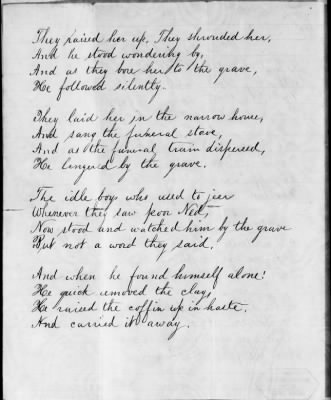 They raised her up, They shrouded her,
And he stood wondering by,
And as they bore her to the grave,
He followed silently.
They laid her in the narrow house,
And sang the funeral stave,
And as the funeral train dispersed,
He lingered by the grave.
The idle boys who used to jeer
Whenever they saw poor Ned,
Now stood and watched him by the grave
But not a word they said.
And when he found himself alone!
He quick removed the clay,
He raised the coffin up in haste,
And carried it away.